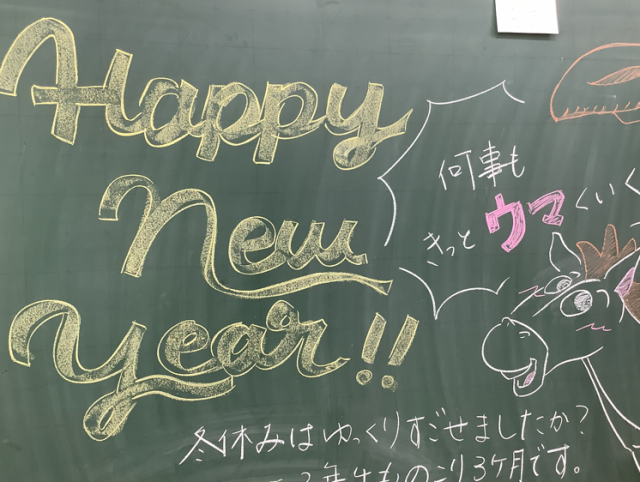 Happy
New
Year!!
何事も
きっとウマくいく
冬休みはゆっくりすごせましたか?
年生ものこり3ヶ月です。